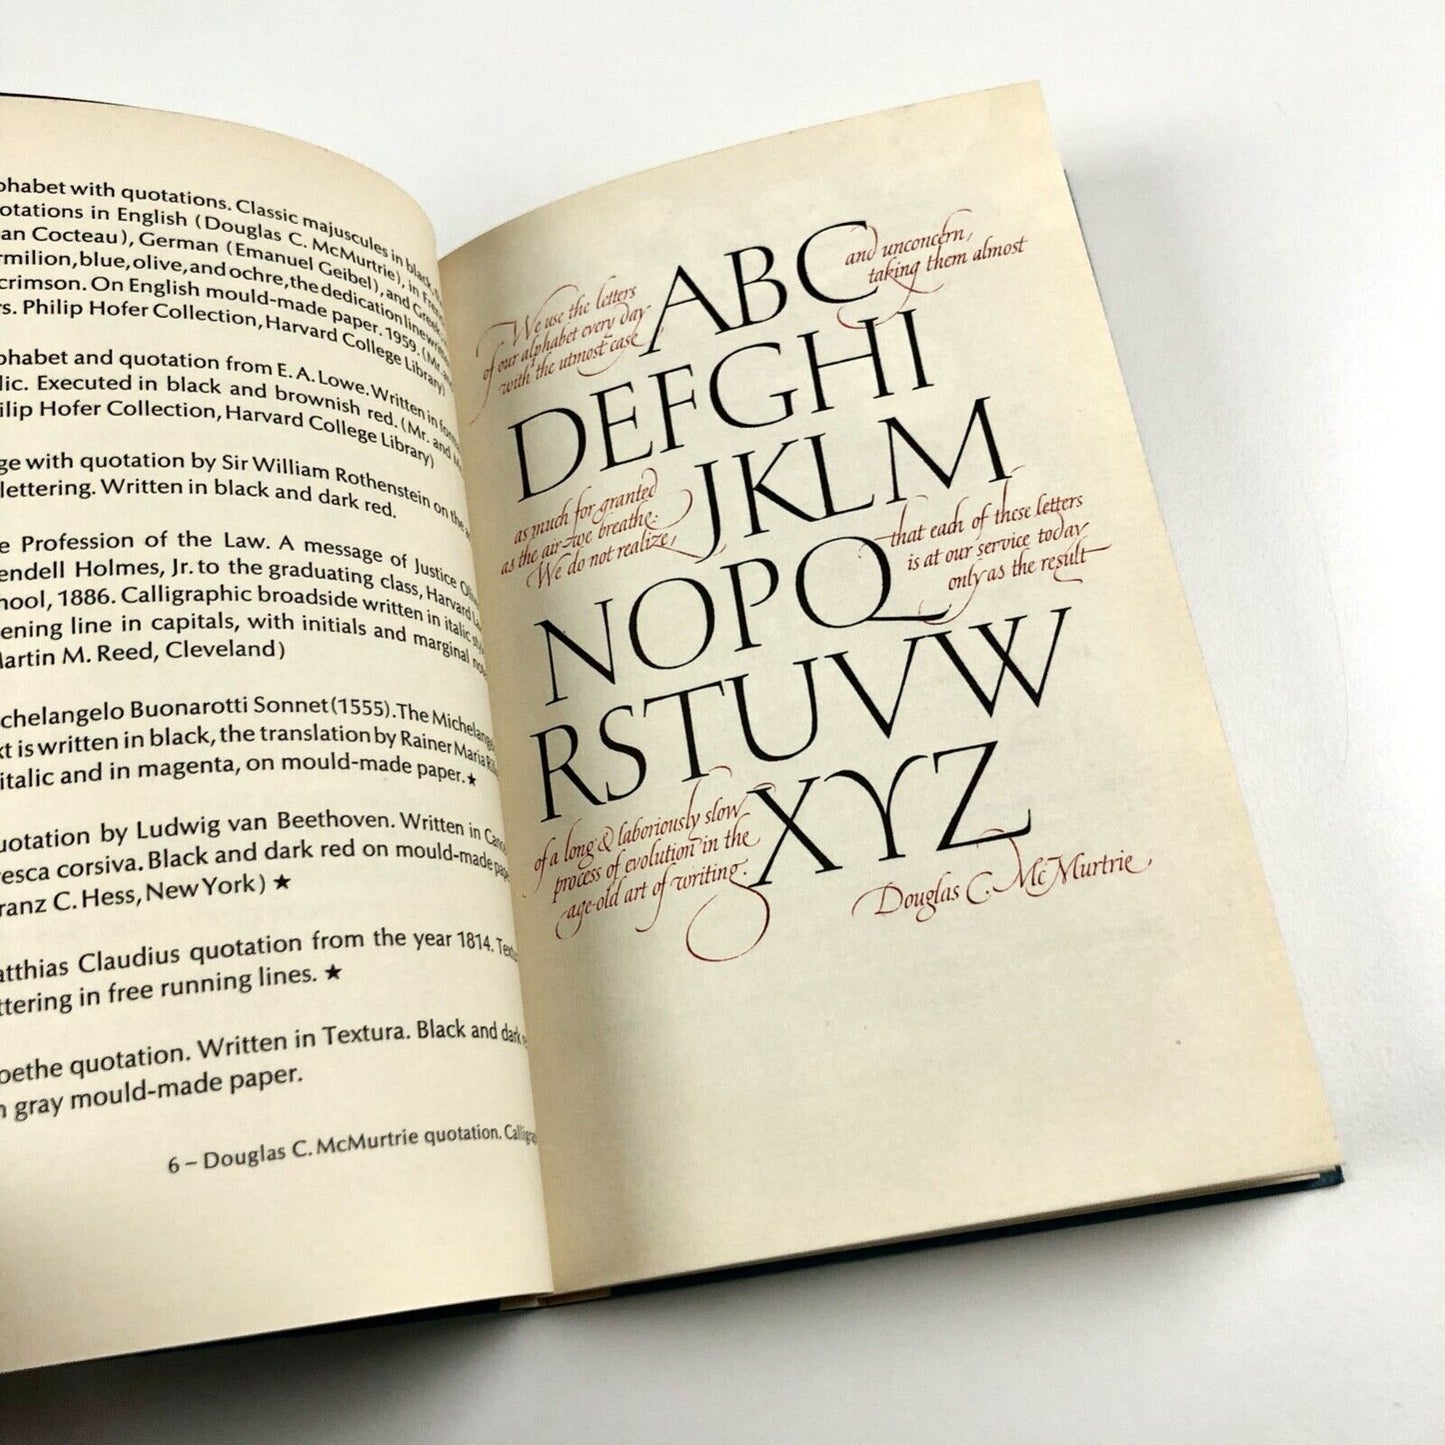 phabet with quotations. Classic majuscules in black, the
otations in English (Douglas C. McMurtrie), in French
an Cocteau), German (Emanuel Geibel), and Greek
rmilion, blue, olive, and ochre, the dedication line written
crimson. On English mould-made paper. 1959. (Mr. and
rs. Philip Hofer Collection, Harvard College Library)
phabet and quotation from E. A. Lowe. Written in
lic. Executed in black and brownish red. (Mr. and M
ilip Hofer Collection, Harvard College Library)
ge with quotation by Sir William Rothenstein on the
lettering. Written in black and dark red.
e Profession of the Law. A message of Justice
endell Holmes, Jr. to the graduating class, Harvard
hool, 1886. Calligraphic broadside written in italic
ening line in capitals, with initials and marginal
artin M. Reed, Cleveland)
ichelangelo Buonarotti Sonnet (1555). The Michelang
xt is written in black, the translation by Rainer Maria
italic and in magenta, on mould-made paper. ★
uotation by Ludwig van Beethoven. Written in
resca corsiva. Black and dark red on mould-made pape
ranz C. Hess, New York) ★
atthias Claudius quotation from the year 1814. Text
ttering in free running lines. ★
oethe quotation. Written in Textura. Black and dark
n gray mould-made paper.
6 – Douglas C. McMurtrie quotation. Calligrap
ABC
DEFGHI
JKLM
NOPQ
RSTUVW
XYZ
We use the letters
of our alphabet every day
with the utmost ease
and unconcern,
taking them almost
as much for granted
as the air we breathe.
We do not realize,
that each of these letters
is at our service today
only as the result
of a long & laboriously slow
process of evolution in the
age-old art of writing.
Douglas C. McMurtrie